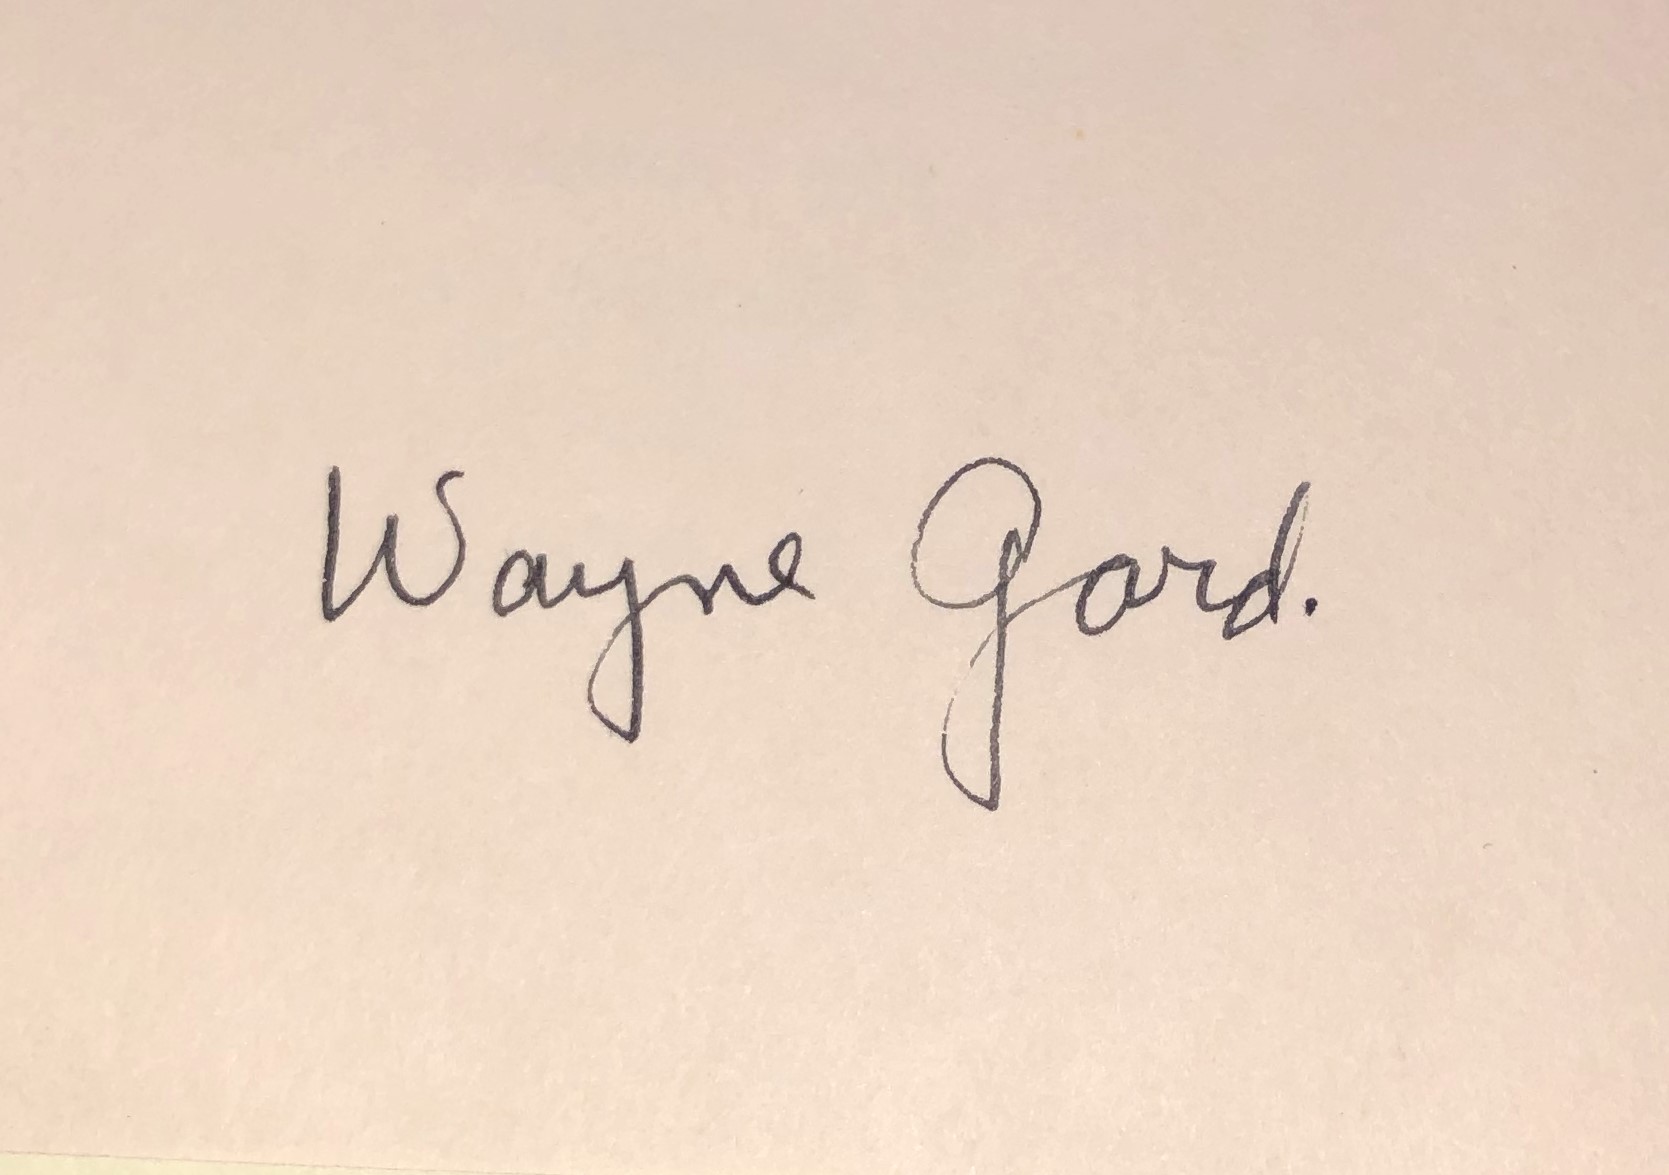 Wayne Gard.